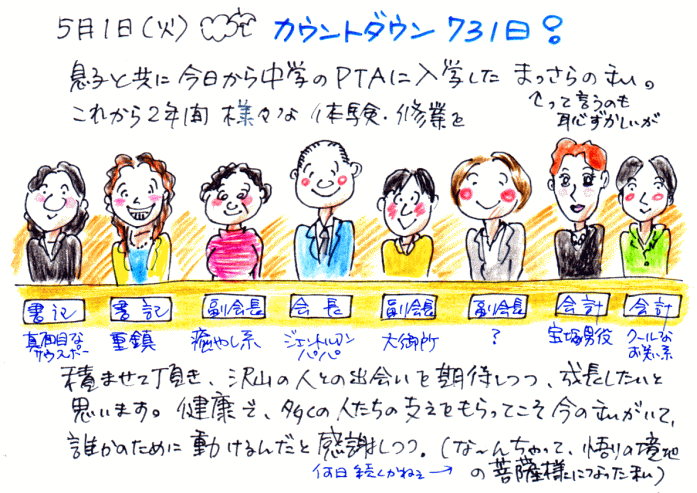 5月1日(火) カウントダウン 731日!
息子と共に今日から中学のPTAに入学した まっさらのわたし。
←って言うのも恥ずかしいが
これから2年間 様々な 体験・修業を
書記 書記 副会長 会長 副会長 副会長 会計 会計
真面目なサウスポー 重鎮 癒やし系 ジェントルマンパパ 大御所 ? 宝塚男役 クールなお笑い系
積ませて頂き、沢山の人との出会いを期待しつつ、成長したいと
思います。健康で、多くの人たちの支えをもらってこそ今のわたしがいて、
誰かのために動けるんだと感謝しつつ。(な〜んちゃって、悟りの境地
の菩薩様になった私)
何日続くかねぇ→